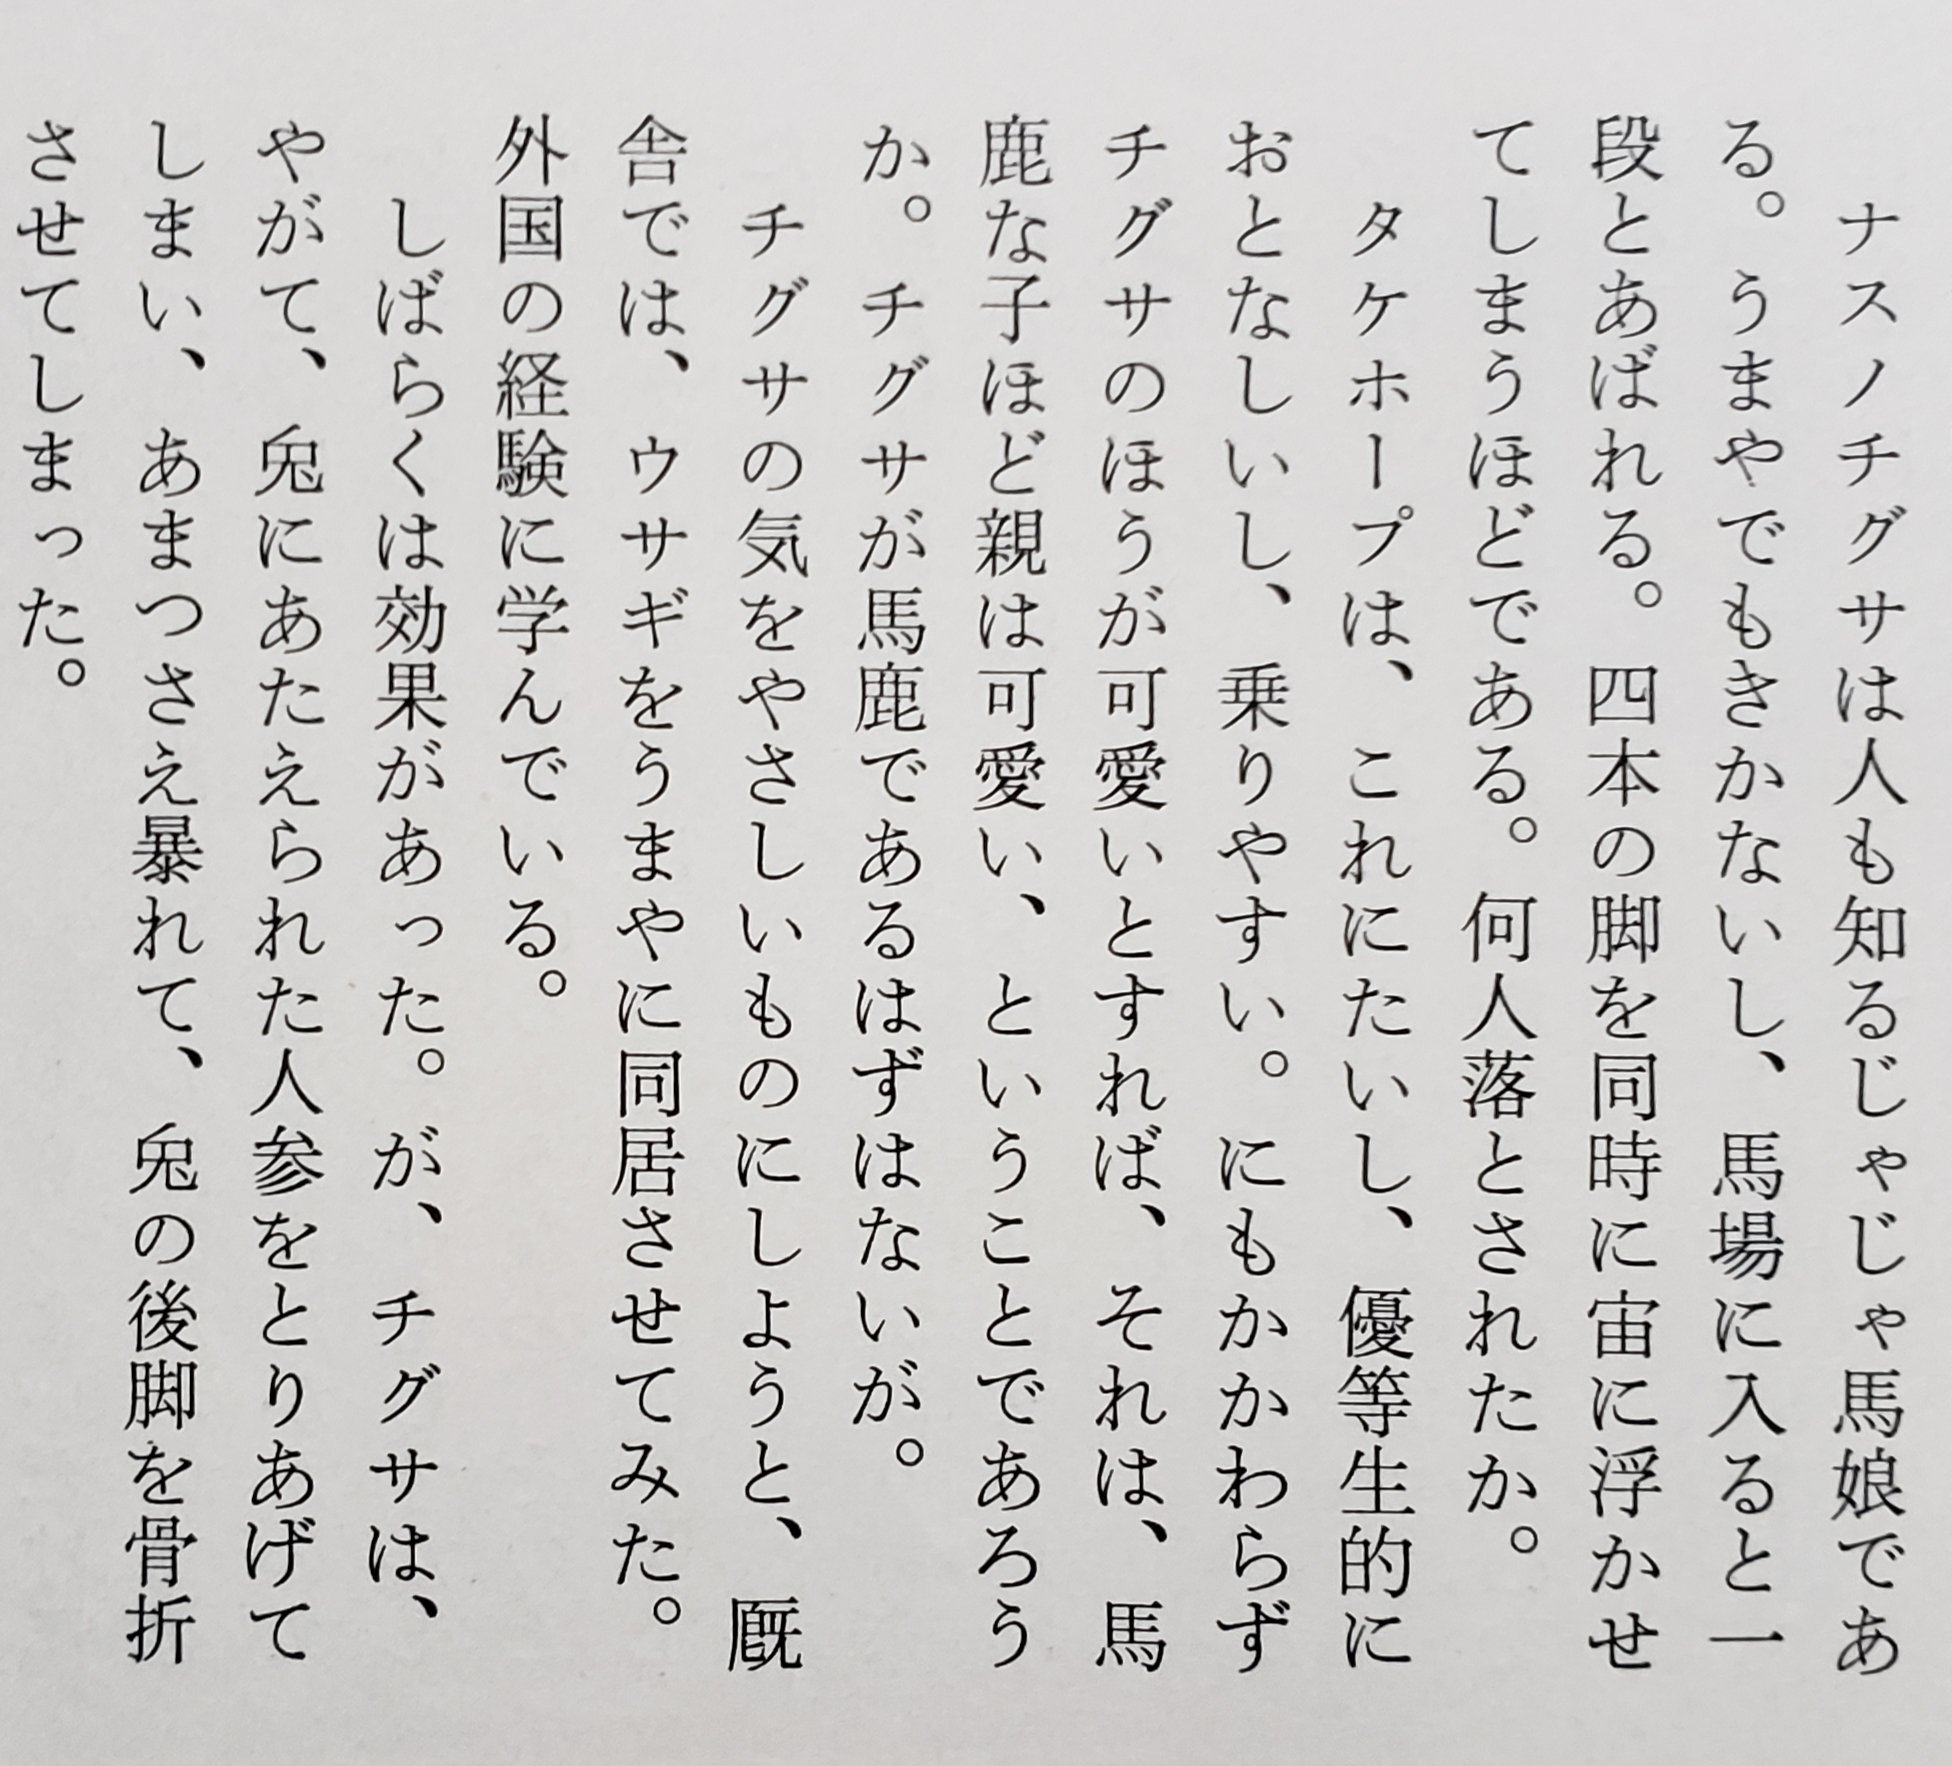 ナスノチグサは人も知るじゃじゃ馬娘であ
る。うまやでもきかないし、馬場に入ると一
段とあばれる。四本の脚を同時に宙に浮かせ
てしまうほどである。何人落とされたか。
タケホープは、これにたいし、優等生的に
おとなしいし、乗りやすい。にもかかわらず
チグサのほうが可愛いとすれば、それは、馬
鹿な子ほど親は可愛い、ということであろう
か。チグサが馬鹿であるはずはないが。
チグサの気をやさしいものにしようと、厩
舎では、ウサギをうまやに同居させてみた。
外国の経験に学んでいる。
しばらくは効果があった。が、チグサは、
やがて、兎にあたえられた人参をとりあげて
しまい、あまつさえ暴れて、兎の後脚を骨折
させてしまった。